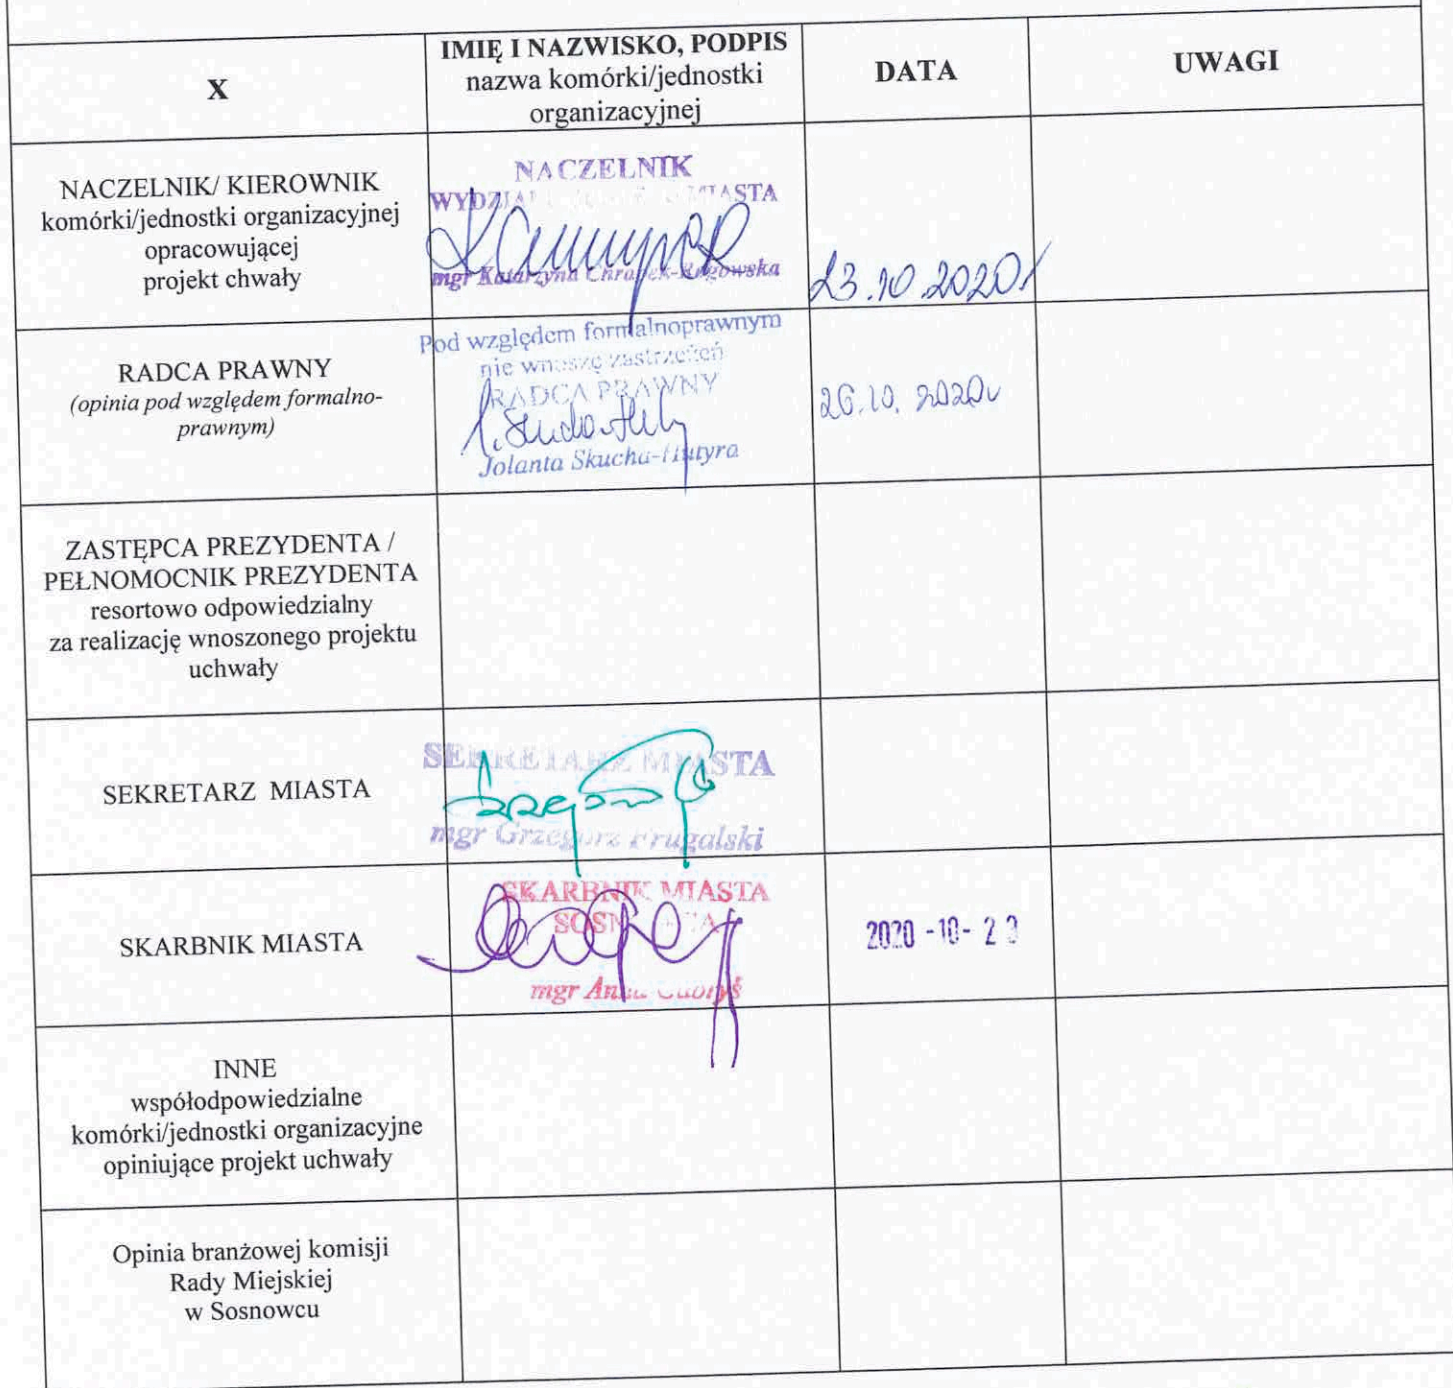 X
IMIĘ I NAZWISKO, PODPIS
nazwa komórki/jednostki
organizacyjnej
DATA
UWAGI
NACZELNIK/ KIEROWNIK
komórki/jednostki organizacyjnej
opracowującej
projekt chwały
NACZELNIK
MIASTA
mgr Katarzyna
23.10.2020r
RADCA PRAWNY
(opinia pod względem formalno-
prawnym)
Pod względem formalnoprawnym
nie wnoszę zastrzeżeń
RADCA PRAWNY
Jolanta Skucha-Hutyra
26.10.2020r
ZASTĘPCA PREZYDENTA /
PEŁNOMOCNIK PREZYDENTA
resortowo odpowiedzialny
za realizację wnoszonego projektu
uchwały
SEKRETARZ MIASTA
SEKRETARZ MIASTA
mgr Grzegorz
SKARBNIK MIASTA
SKARBNIK MIASTA
mgr
2020-10-23
INNE
współodpowiedzialne
komórki/jednostki organizacyjne
opiniujące projekt uchwały
Opinia branżowej komisji
Rady Miejskiej
w Sosnowcu